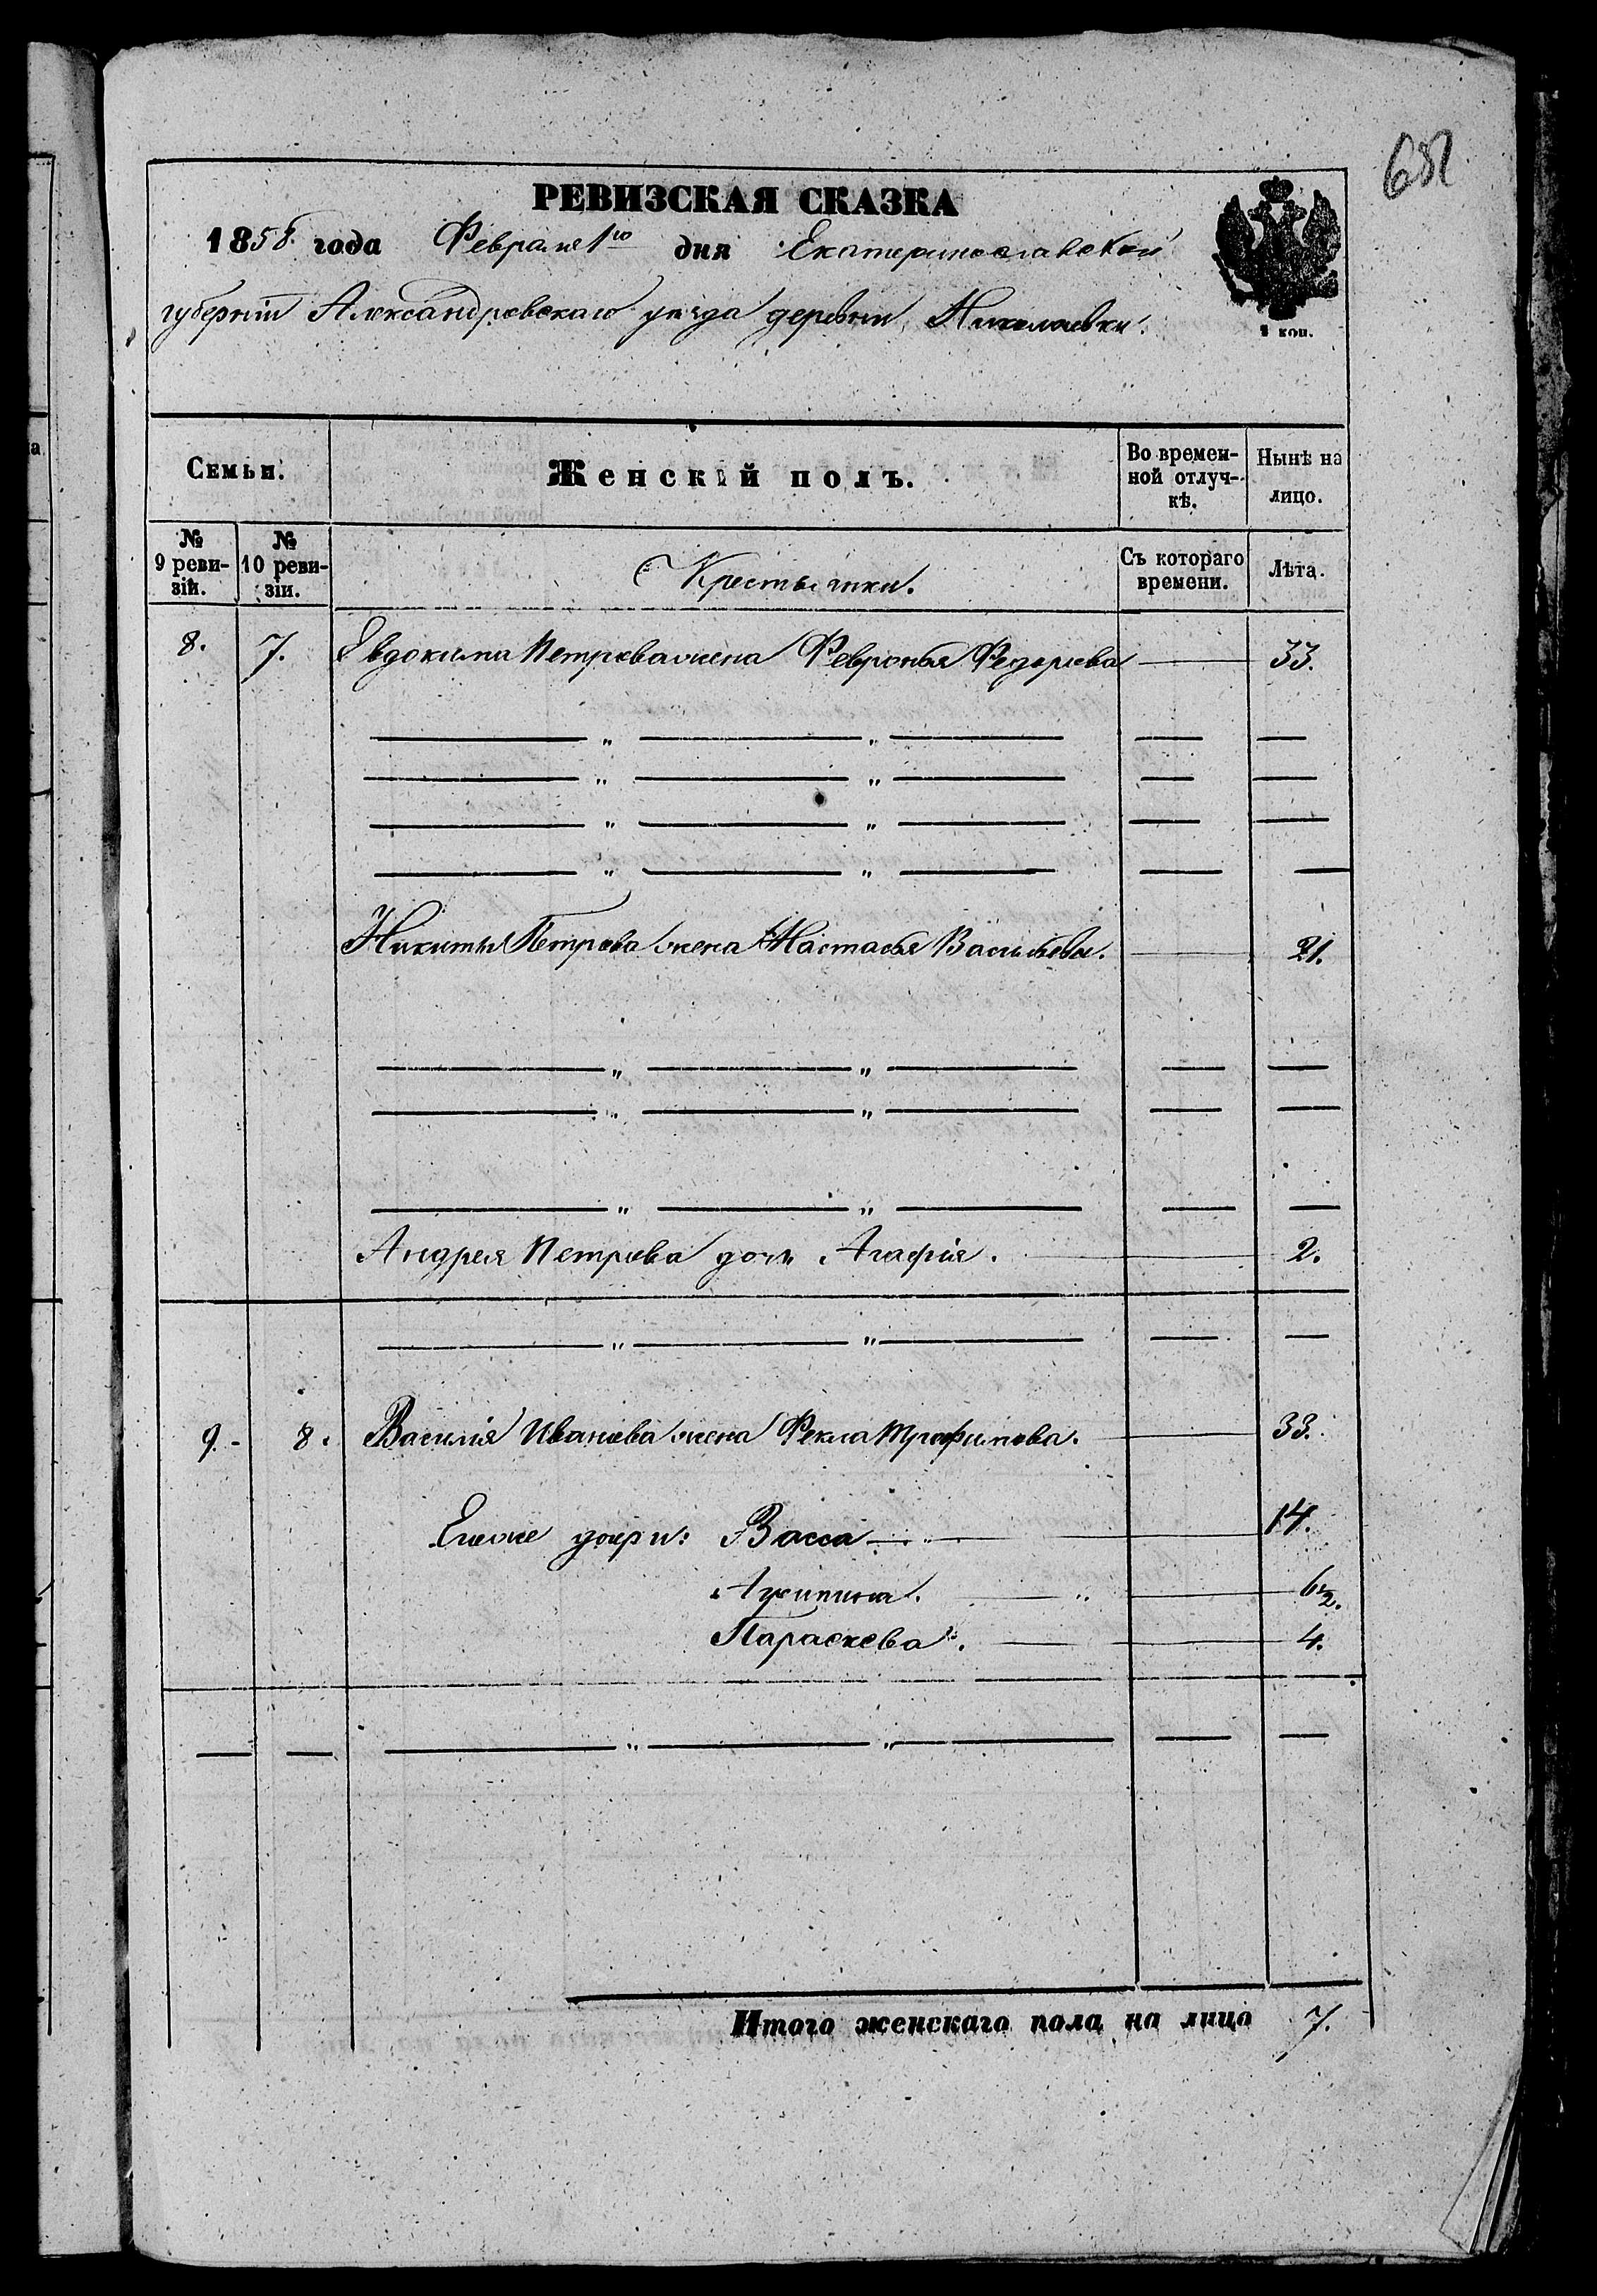 681
РЕВИЗСКАЯ СКАЗКА
1858 года Февраля 1го дня Екатеринославской
губерніи Александровскаго уѣзда деревни Николаевки.
1 коп.
Семьи. Женскій полъ. Во времен- Нынѣ на
ной отлуч- лицо.
кѣ.
№ № Крестьянки. Съ котораго Лѣта.
9 реви- 10 реви- времени.
зіи. зіи.
8. 7. Евдокима Петрова жена Февронья Федорова — 33.
— „ — „ — — —
— „ — „ — — —
— „ — „ — — —
— „ — „ — — —
Никиты Петрова жена Настасья Васильева. — 21.
— „ — „ — — —
— „ — „ — — —
— „ — „ — — —
Андрея Петрова дочь Агафія. — 2.
— „ — „ — — —
9. 8. Василія Иванова жена Фекла Трофимова. — 33.
Егоже дочери: Васса — 14.
Акилина. — „ — 6½.
Параскева. — 4.
— — — „ — „ — — —
Итого женскаго пола на лицо 7.